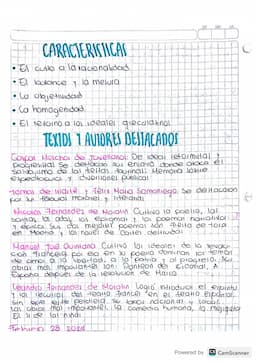 CARACTERISTICAS
• El culto a la racionalidad
• El balance y la mesura
• La objetividad
• La homogenidad
• El retorno a los ideales grecolatinos
TEXTOS Y AUTORES DESTACADOS
Gaspar Melchor de Jovellanos: De ideal reformista y
se destacan su en donde
de las taurinas: Memoria sobre
espectaculos y diversiones publicas
Tomas de Iriarte y Félix Maria Samaniego: Se destacaron
por sus fabulas morales y literarias
Nicolas Fernandez de Moratin: Cultivo la poesia, las
satiras, las odas, los epigramas y los poemas
y epicos. Sus dos mejores poemas son Fiesta de toros
en Madrid y las naves de Cortes destruidas
Manuel José Quintana: Cultivo los ideales de la revolu-
cion francesa por eso en su poesia dominan los temas
de amor a la libertad, a la patria y al progreso. Sus
obras mas importantes son: Panteon del Escorial, A
España despues de la revolucion de Marzo
Leandro Fernandez de Moratin: Logro introducir el espiritu
y la del teatro frances en el teatro español,
sin que este perdiera su toque nacional y local.
Sus obras mas importantes: la comedia humana, la mojigata,
el si de las niñas
Febrero 28 2024
Powered by CamScanner